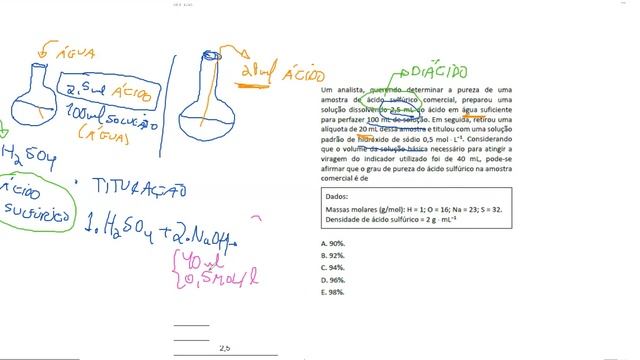 ÁGUA
2,5ml ÁCIDO
100ml SOLUCÃO
(ÁGUA)
20ml ÁCIDO
H2SO4
ÁCIDO
SULFÚRICO
• TITURAÇÃO
1.H2SO4 + 2.NaOH→
40ml
0,5MOL/l
2,5
DIÁCIDO
Um analista, querendo determinar a pureza de uma
amostra de ácido sulfúrico comercial, preparou uma
solução dissolvendo 2,5 mL do ácido em água suficiente
para perfazer 100 mL de solução. Em seguida, retirou uma
alíquota de 20 mL dessa amostra e titulou com uma solução
padrão de hidróxido de sódio 0,5 mol · L⁻¹. Considerando
que o volume da solução básica necessário para atingir a
viragem do indicador utilizado foi de 40 mL, pode-se
afirmar que o grau de pureza do ácido sulfúrico na amostra
comercial é de
Dados:
Massas molares (g/mol): H = 1; O = 16; Na = 23; S = 32.
Densidade de ácido sulfúrico = 2 g · mL⁻¹
A. 90%.
B. 92%.
C. 94%.
D. 96%.
E. 98%.